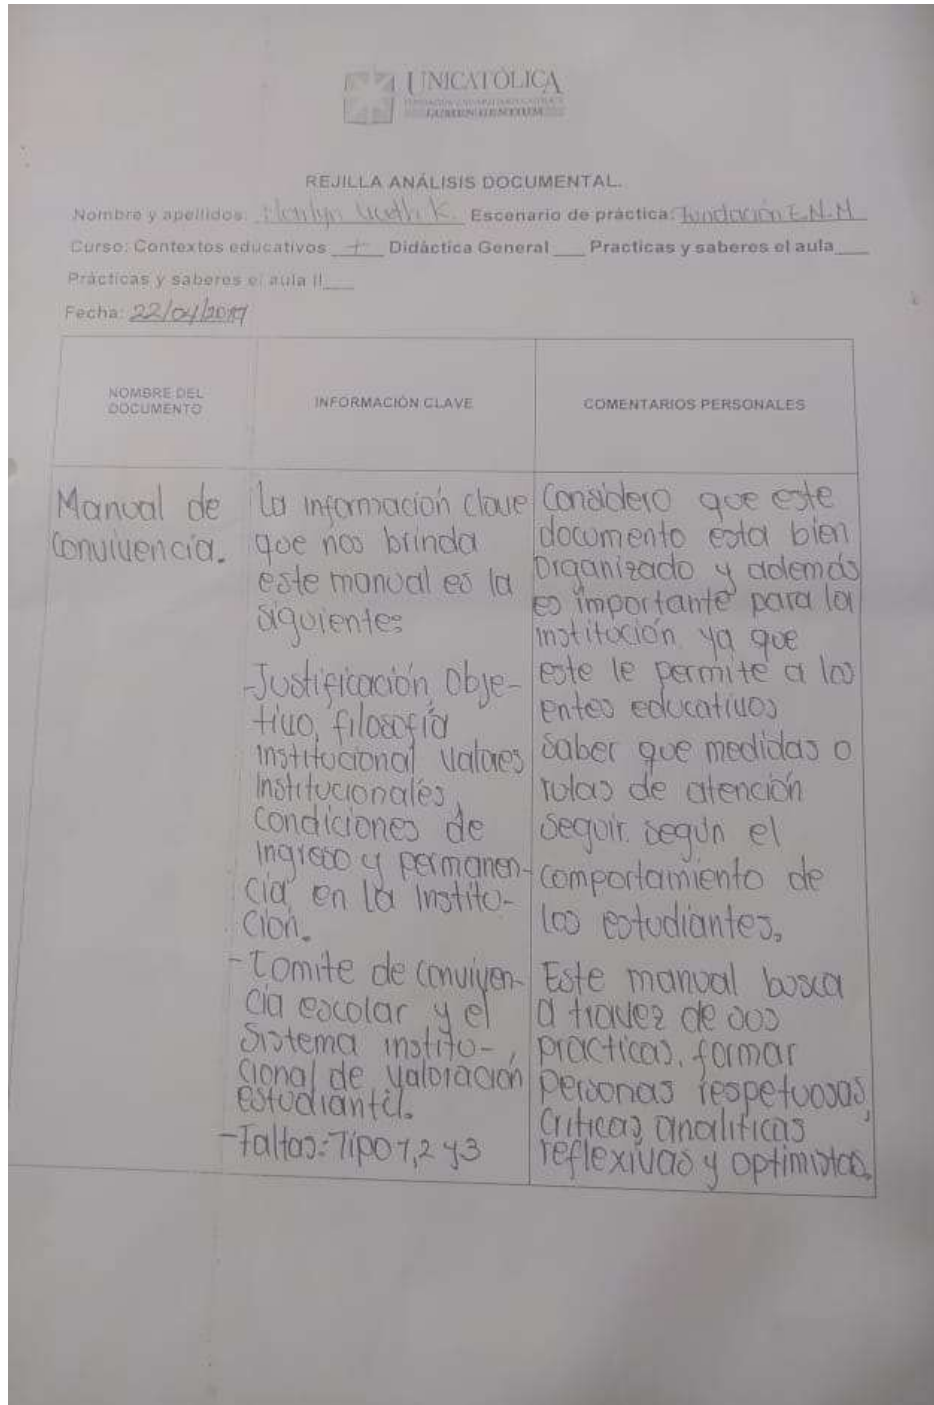 UNICATÓLICA
FUNDACIÓN UNIVERSITARIA CATÓLICA
LUMEN GENTIUM
REJILLA ANÁLISIS DOCUMENTAL.
Nombre y apellidos: K. Escenario de práctica: Fundación E.N.M
Curso: Contextos educativos + Didáctica General ___ Practicas y saberes el aula ___
Prácticas y saberes el aula II ___
Fecha: 22/04/
NOMBRE DEL
DOCUMENTO
INFORMACIÓN CLAVE
COMENTARIOS PERSONALES
Manual de
Convivencia.
La información clave
que nos brinda
este manual es la
siguiente:
-Justificación, Obje-
tivo, filosofía
institucional valores
institucionales,
condiciones de
ingreso y permanen-
cia, en la institu-
ción.
-Comite de conviven-
cia escolar y el
sistema institu-
cional de valoración
estudiantil.
-Faltas: Tipo 1,2 y 3
Considero que este
documento esta bien
organizado y además
es importante para la
institución ya que
este le permite a los
entes educativos
saber que medidas o
rutas de atención
seguir. según el
comportamiento de
los estudiantes.
Este manual busca
a travez de sus
practicas, formar
personas respetuosas,
criticas, analiticas
reflexivas y optimistas.